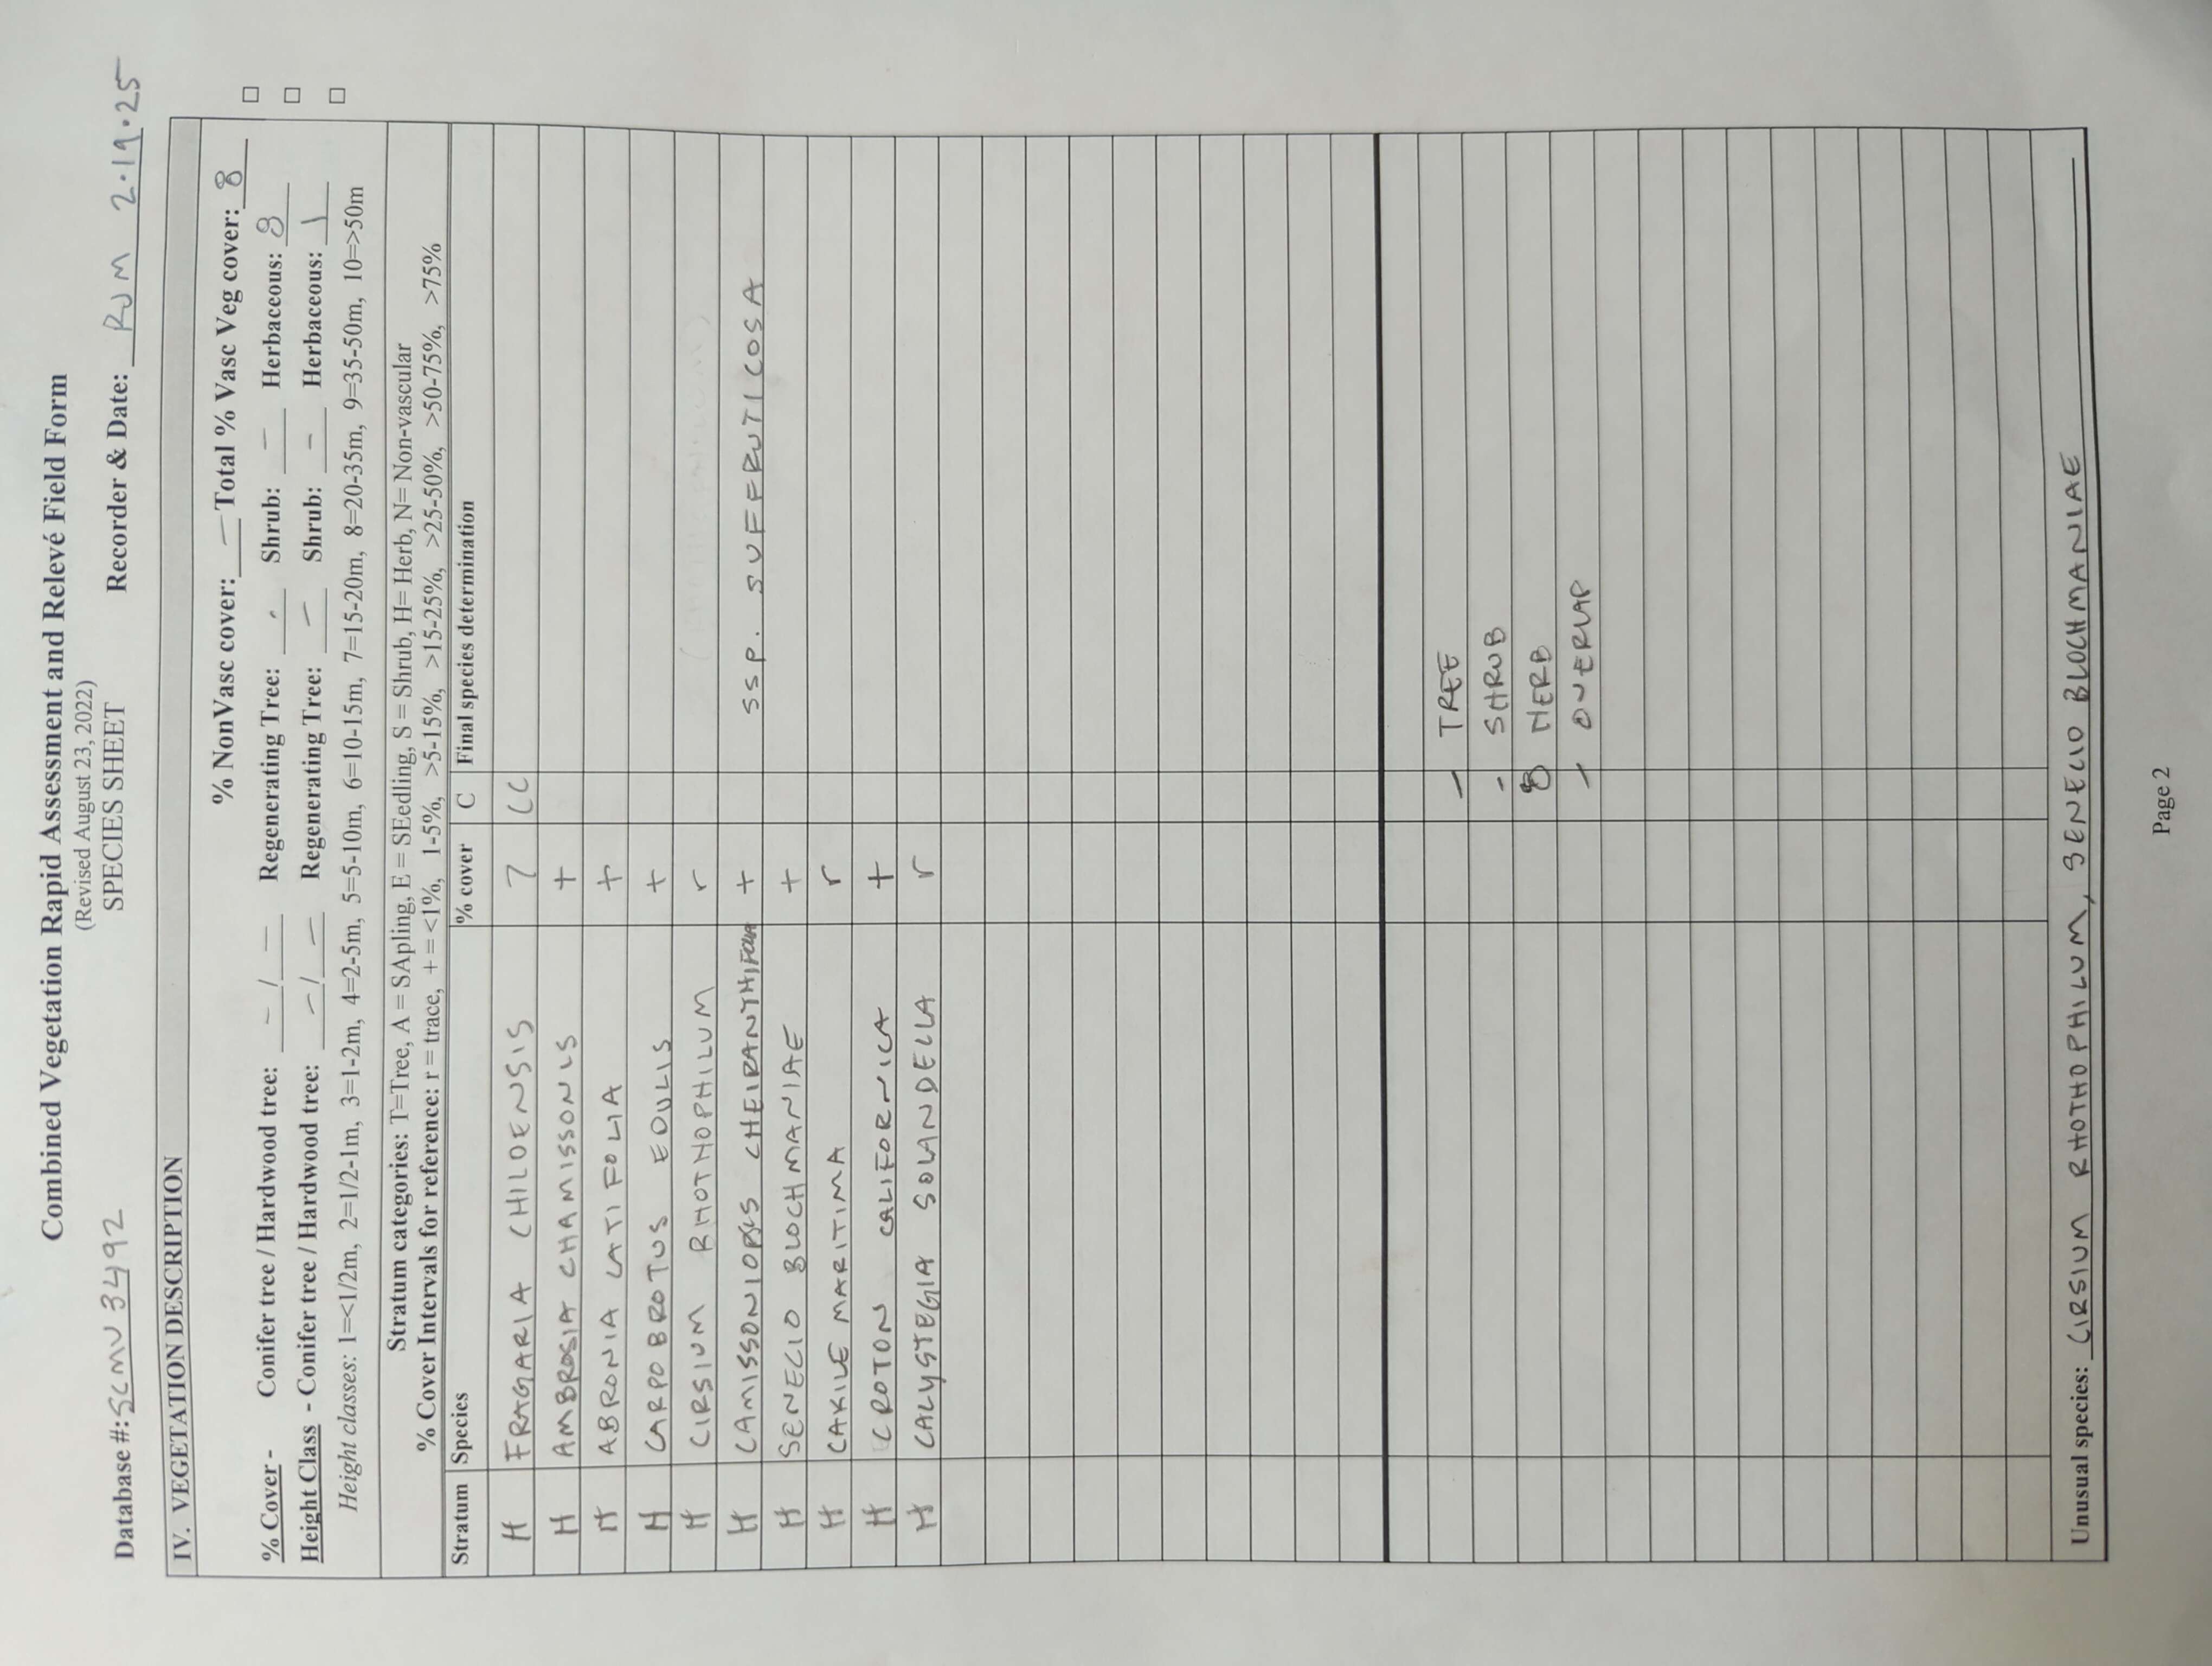 Combined Vegetation Rapid Assessment and Relevé Field Form
(Revised August 23, 2022)
SPECIES SHEET
Database #: SCMV 3492 Recorder & Date: RJM 2.19.25
IV. VEGETATION DESCRIPTION
% NonVasc cover: — Total % Vasc Veg cover: 8 □
% Cover - Conifer tree / Hardwood tree: – / – Regenerating Tree: - Shrub: – Herbaceous: 8 □
Height Class - Conifer tree / Hardwood tree: – / – Regenerating Tree: – Shrub: – Herbaceous: 1 □
Height classes: 1=<1/2m, 2=1/2-1m, 3=1-2m, 4=2-5m, 5=5-10m, 6=10-15m, 7=15-20m, 8=20-35m, 9=35-50m, 10=>50m
Stratum categories: T=Tree, A = SApling, E = SEedling, S = Shrub, H= Herb, N= Non-vascular
% Cover Intervals for reference: r = trace, + = <1%, 1-5%, >5-15%, >15-25%, >25-50%, >50-75%, >75%
Stratum Species % cover C Final species determination
H FRAGARIA CHILOENSIS 7 CC
H AMBROSIA CHAMISSONIS +
H ABRONIA LATIFOLIA +
H CARPOBROTUS EDULIS +
H CIRSIUM RHOTHOPHILUM r
H CAMISSONIOPSIS CHEIRANTHIFOLIA + SSP. SUFFRUTICOSA
H SENECIO BLOCHMANIAE +
H CAKILE MARITIMA r
H CROTON CALIFORNICA +
H CALYSTEGIA SOLANDELLA r
– TREE
- SHRUB
8 HERB
– OVERLAP
Unusual species: CIRSIUM RHOTHOPHILUM, SENECIO BLOCHMANIAE
Page 2